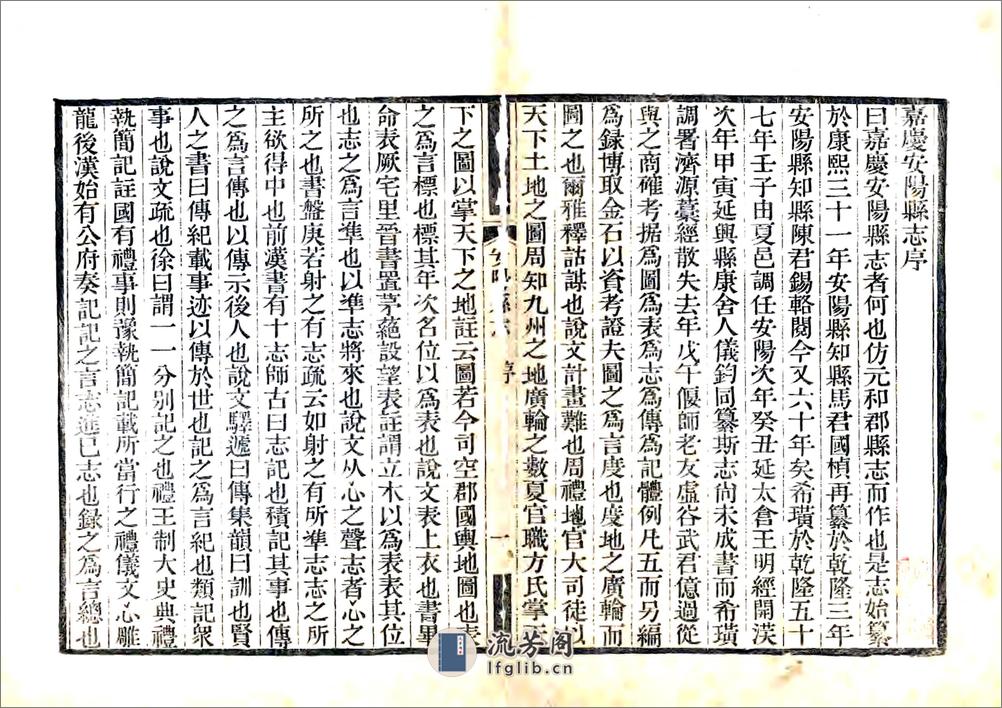 嘉慶安陽縣志序
曰嘉慶安陽縣志者何也仿元和郡縣志而作也是志始纂
於康熙三十一年安陽縣知縣馬君國楨再纂於乾隆三年
安陽縣知縣陳君錫輅閱今又六十年矣希璜於乾隆五十
七年壬子由夏邑調任安陽次年癸丑延太倉王明經開渶
次年甲寅延興縣康舍人儀鈞同纂斯志尚未成書而希璜
調署濟源藁經散失去年戊午偃師老友虛谷武君億過從
與之商確考据為圖為表為志為傳為記體例凡五而另編
為録博取金石以資考證夫圖之為言度也度地之廣輪而
圖之也爾雅釋詁謀也說文計畫難也周禮地官大司徒以
天下土地之圖周知九州之地廣輪之數夏官職方氏掌天
序
一
下之圖以掌天下之地註云圖若今司空郡國輿地圖也表
之為言標也標其年次名位以為表也說文表上衣也書畢
命表厥宅里晉書置茅蕝設望表註謂立木以為表表其位
也志之為言準也以準志將來也說文从心之聲志者心之
所之也書盤庚若射之有志疏云如射之有所準志志之所
主欲得中也前漢書有十志師古曰志記也積記其事也傳
之為言傳也以傳示後人也說文驛遞曰傳集韻曰訓也賢
人之書曰傳紀載事迹以傳於世也記之為言紀也類記衆
事也說文疏也徐曰謂一一分別記之也禮王制大史典禮
執簡記註國有禮事則豫執簡記載所當行之禮儀文心雕
龍後漢始有公府奏記記之言志進已志也録之為言總也
流芳阁
lfglib.cn